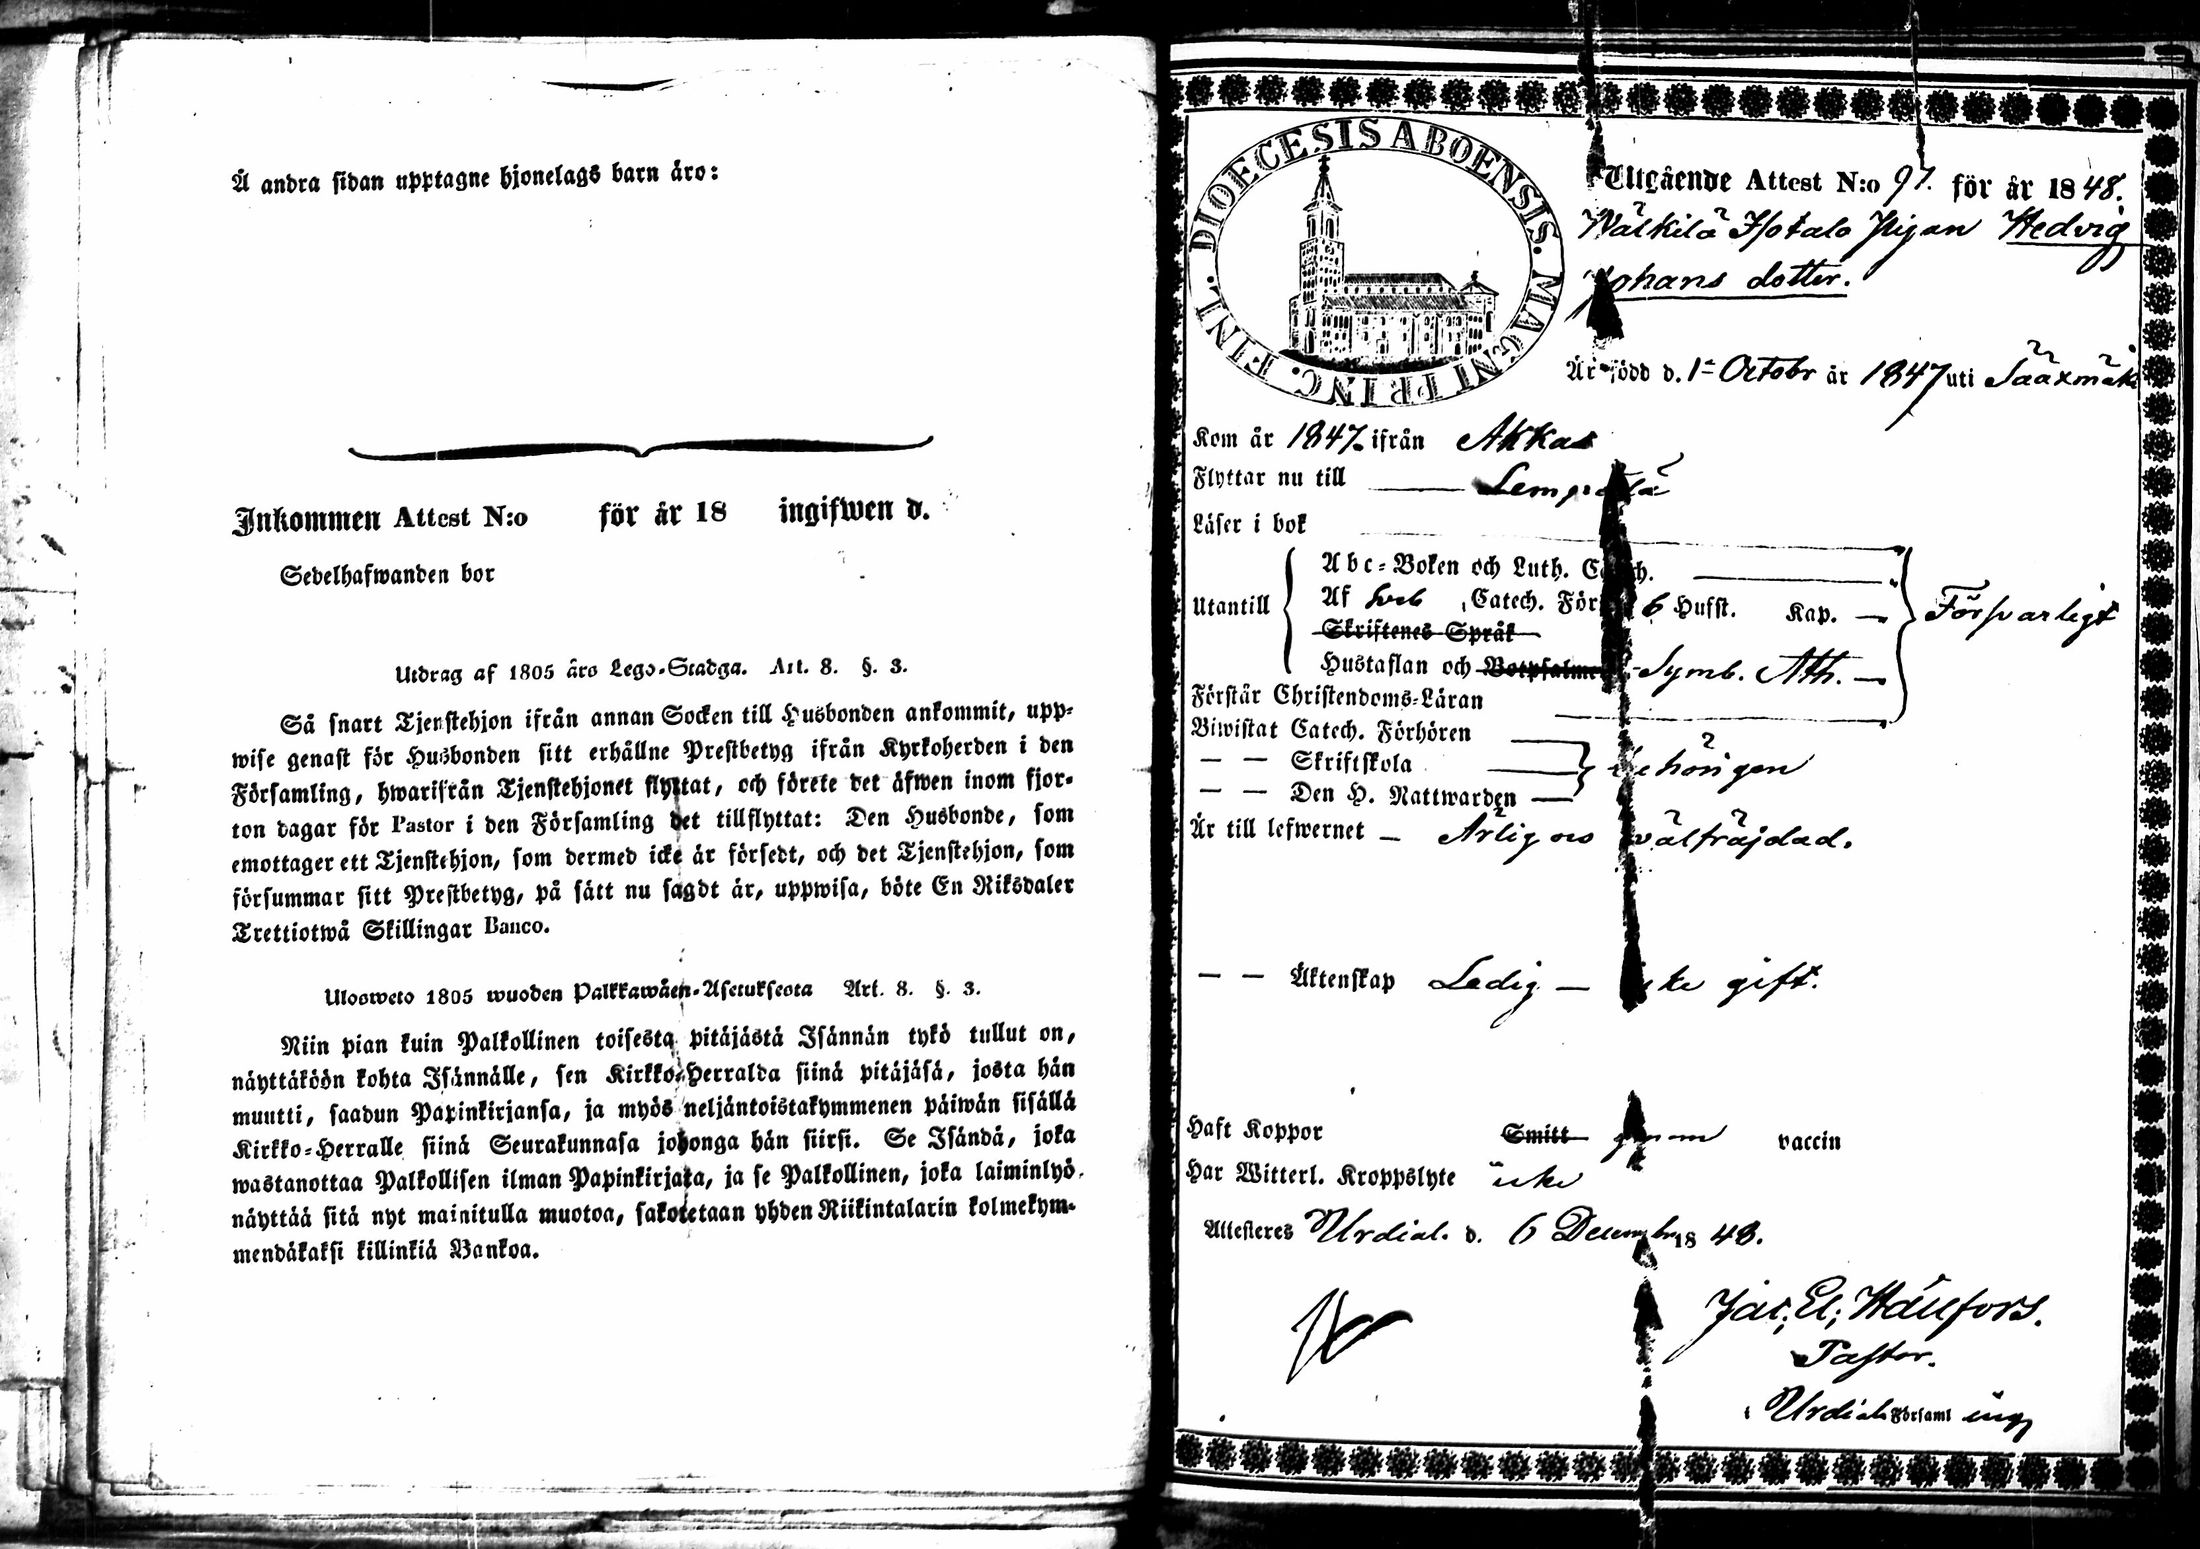 Å andra sidan upptagne hjonelags barn äro:
Inkommen Attest N:o för år 18 ingifwen d.
Sedelhafwanden bor
Utdrag af 1805 års Lego-Stadga. Art. 8. §. 3.
Så snart Tjenstehjon ifrån annan Socken till Husbonden ankommit, upp-
wise genast för Husbonden sitt erhållne Prestbetyg ifrån Kyrkoherden i den
Församling, hwarifrån Tjenstehjonet flyttat, och förete det äfwen inom fjor-
ton dagar för Pastor i den Församling det tillflyttat: Den Husbonde, som
emottager ett Tjenstehjon, som dermed icke är försedt, och det Tjenstehjon, som
försummar sitt Prestbetyg, på sätt nu sagdt är, uppwisa, böte En Riksdaler
Trettiotwå Skillingar Banco.
Ulosweto 1805 wuoden Palkkawäen-Asetuksesta Art. 8. §. 3.
Niin pian kuin Palkollinen toisesta pitäjästä Isännän tykö tullut on,
näyttäköön kohta Isännälle, sen Kirkko-Herralda siinä pitäjäsä, josta hän
muutti, saadun Papinkirjansa, ja myös neljäntoistakymmenen päiwän sisällä
Kirkko-Herralle siinä Seurakunnasa johonga hän siirsi. Se Isändä, joka
wastanottaa Palkollisen ilman Papinkirjata, ja se Palkollinen, joka laiminlyö
näyttää sitä nyt mainitulla muotoa, sakotetaan yhden Riikintalarin kolmekym-
mendäkaksi killinkiä Bankoa.
DIOECESIS ABOENSIS. MAGNI PRINC. FINL.
Utgående Attest N:o 97. för år 1848.
Wälkilä Isotalo Pigan Hedvig
Johans dotter.
Är född d. 1 Octobr år 1847 uti Sääxmäki
Kom år 1847 ifrån Akkas
Flyttar nu till Lempälä
Läser i bok
Abc-Boken och Luth. Catech.
Utantill Af Sveb. Catech. Förk. 6 Hufst. Kap. — Försvarligt
Skriftenes Språk
Hustaflan och Botpsalmerne Symb. Ath. —
Förstår Christendoms-Läran
Biwistat Catech. Förhören
— — Skriftskola behörigen
— — Den H. Nattwarden
Är till lefwernet — Ärlig och välfräjdad.
— — Äktenskap Ledig — icke gift.
Haft Koppor Smitt genom vaccin
Har Witterl. Kroppslyte icke
Attesteres Urdiala d. 6 December 1848.
Jac. El. Hällfors.
Pastor.
i Urdiala Församling